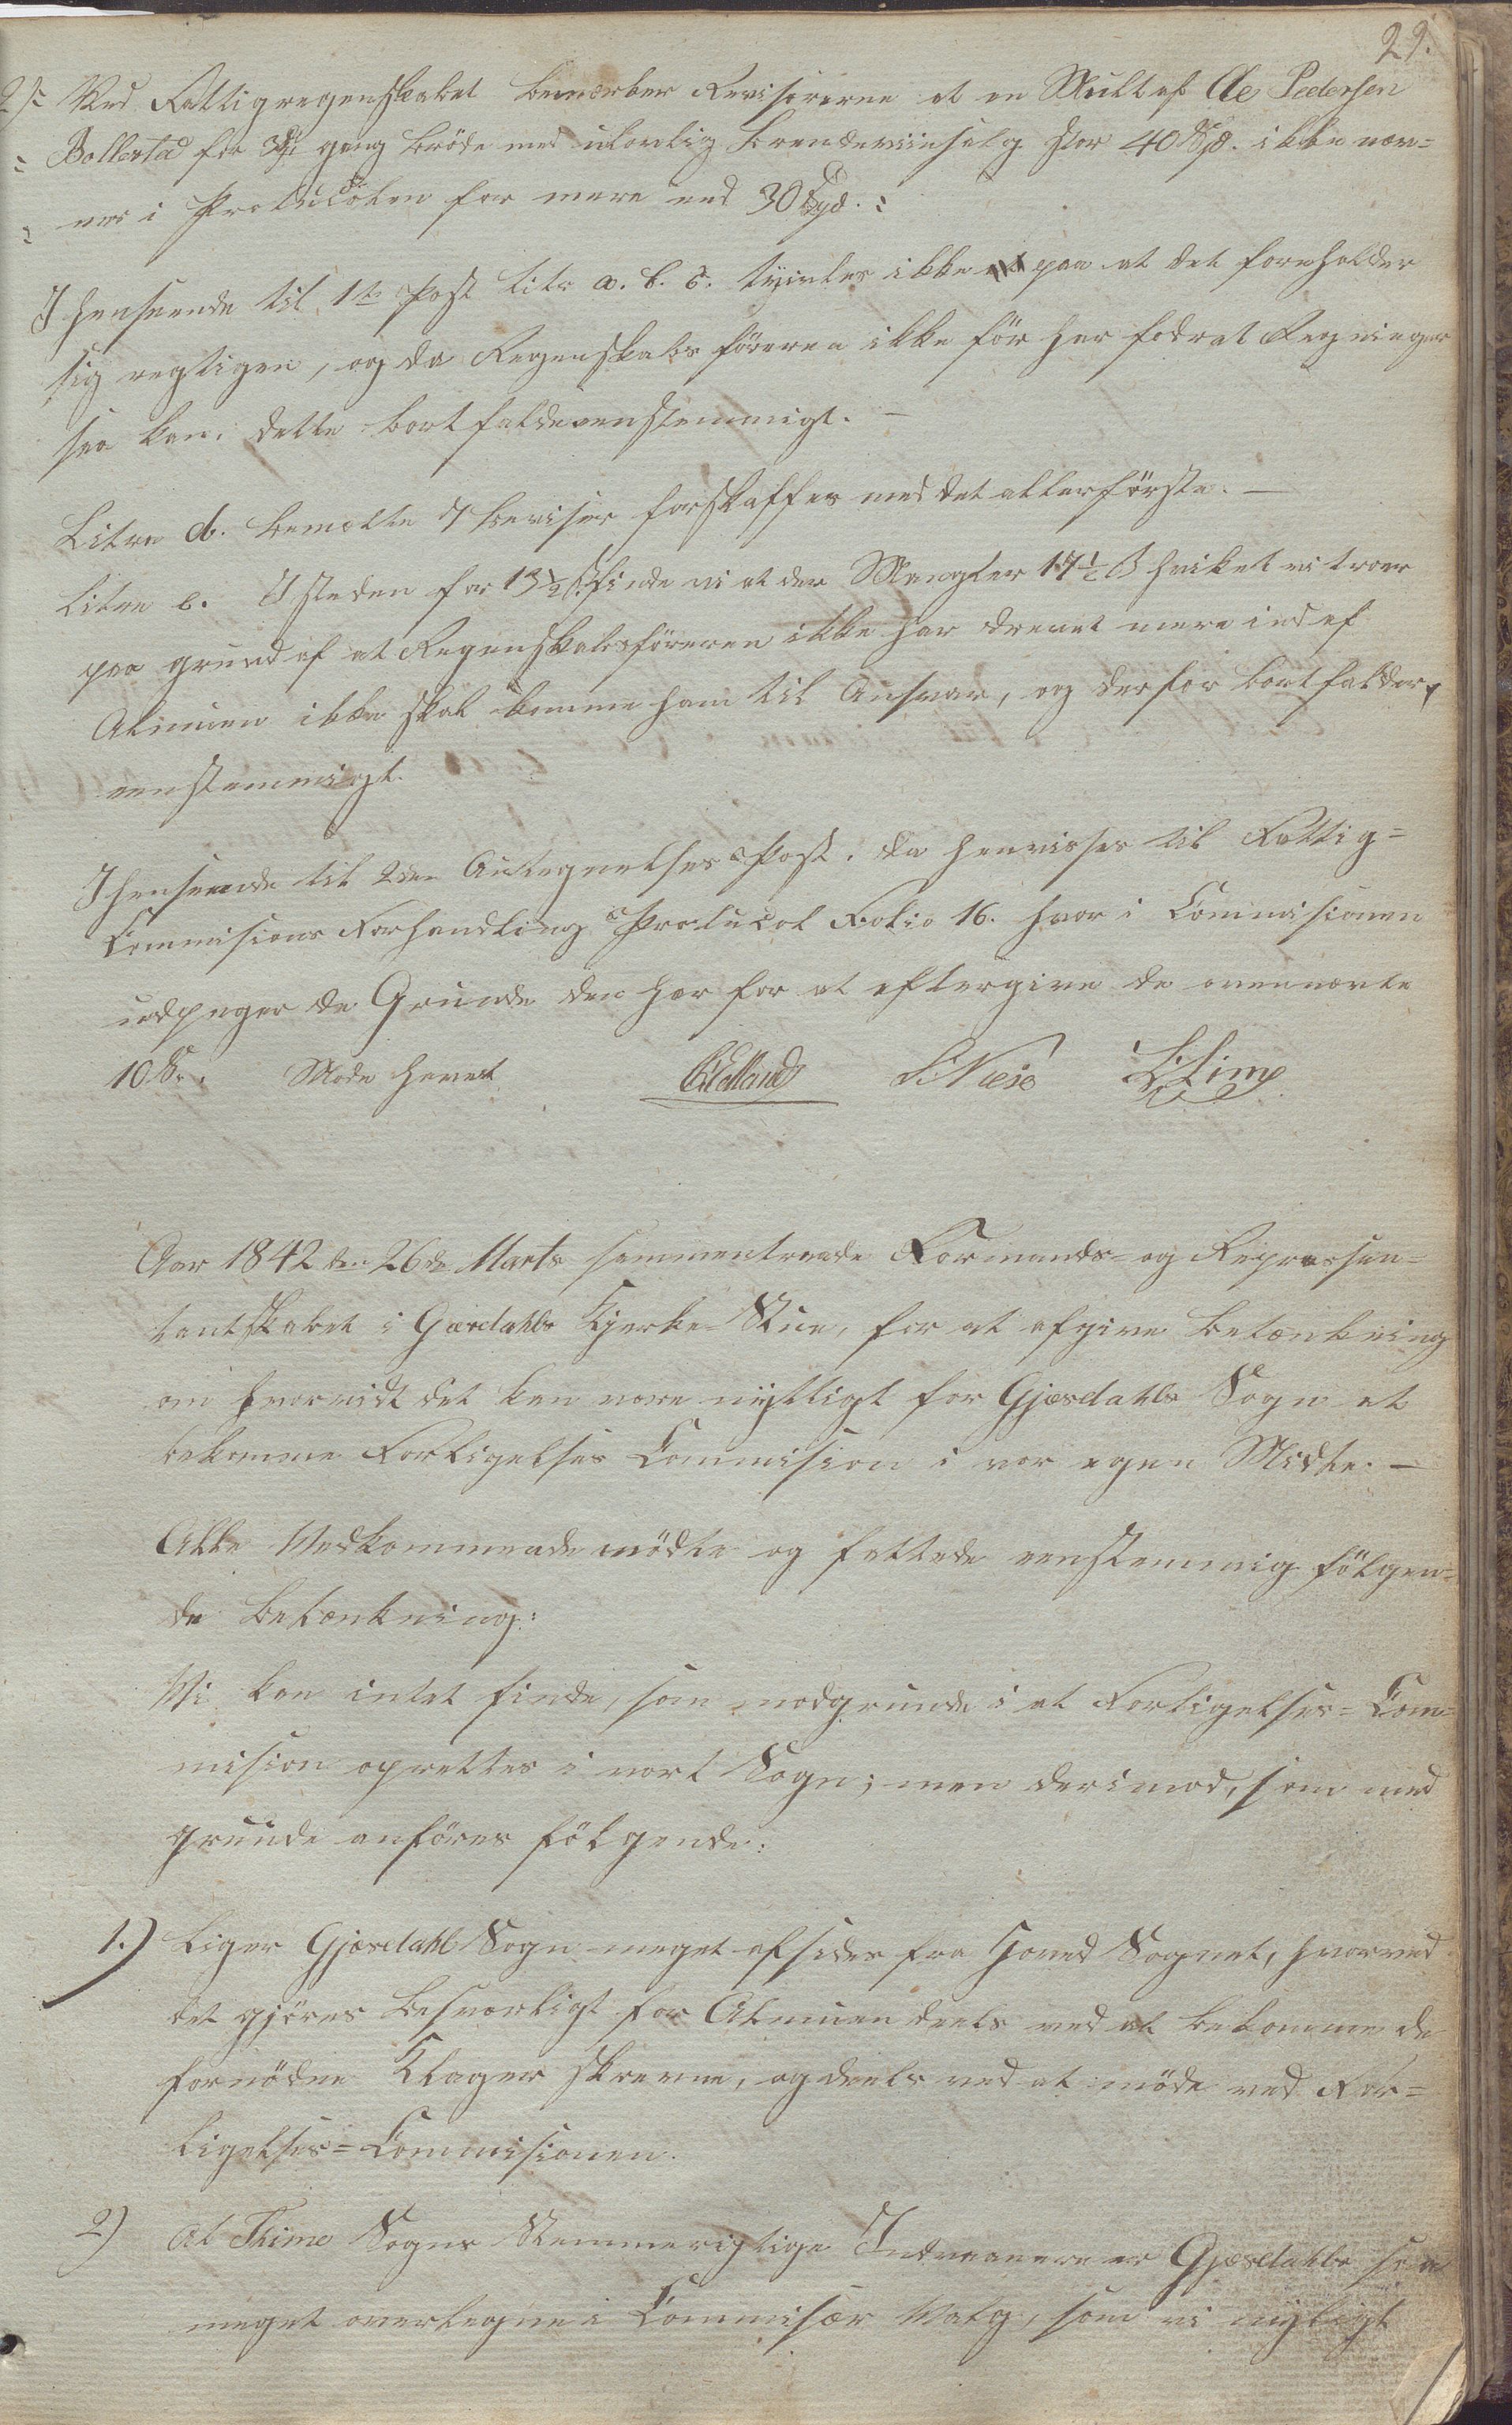 29.
2) Ved Fattigregenskabet bemærker Revisorerne at en Mult af Ole Pedersen
Bollestad for 3die gang bröde med ulovlig brændeviinsalg stor 40 Spd. ikke næv=
nes i Protucolen for mere end 30 Spd.
I henseende til 1te Post Litr a. b. c. tvivles ikke paa at det foreholder
sig regtigen, og da Regenskabs föreren ikke för har fodret Regninger
saa kan dette bortfalde eenstemmigt. –
Litra d. bemelte 7 beviser forskaffes med det allerförste. –
Litra e. I steden for 13½ ß finde vi at der Mangler 17½ ß hvilket vi troer
paa grund af at Regenskabsföreren ikke har drevet mere ind af
Almuen ikke skal komme ham til Ansvar, og derfor bortfalder,
eenstemmigt.
I henseende til 2den Antegnelses Post. da henvisses til Fattig=
Commisions Forhandling Protucol Folio 16. hvor i Commisionen
udpeger de Grunde den har for at eftergive de ovennevte
10 Spd. Möde hevet Kielland S: Næse L Lima
Aar 1842 den 26de Marts sammentraade Formands- og Repræssen=
tantskabet i Gæsdahls Kjerke-Stue, for at afgive betænkning
om hvorvidt det kan være nyttigt for Gjæsdahls Sogn at
bekomme Forligelses Commision i vor egen Midte. –
Alle Vedkommende mödte og fattede eenstemmig fölgen=
de betænkning:
Vi kan intet finde, som modgrunde i at Forligelses-Com=
mision oprettes i vort Sogn; men derimod, som med
grunde anföres fölgende:
1.) Liger Gjæsdahl Sogn meget afsides fra Hoved Sognet, hvorved
det gjöres besværligt for Almuen deels ved at bekomme de
fornödne Klager skrevne, og deels ved at möde ved For=
ligelses=Commisionen.
2) At Thime Sogns Stemmerigtige Indvaanere er Gjæsdahls saa
meget overlegne i Commisær Valg, som vi nyligt